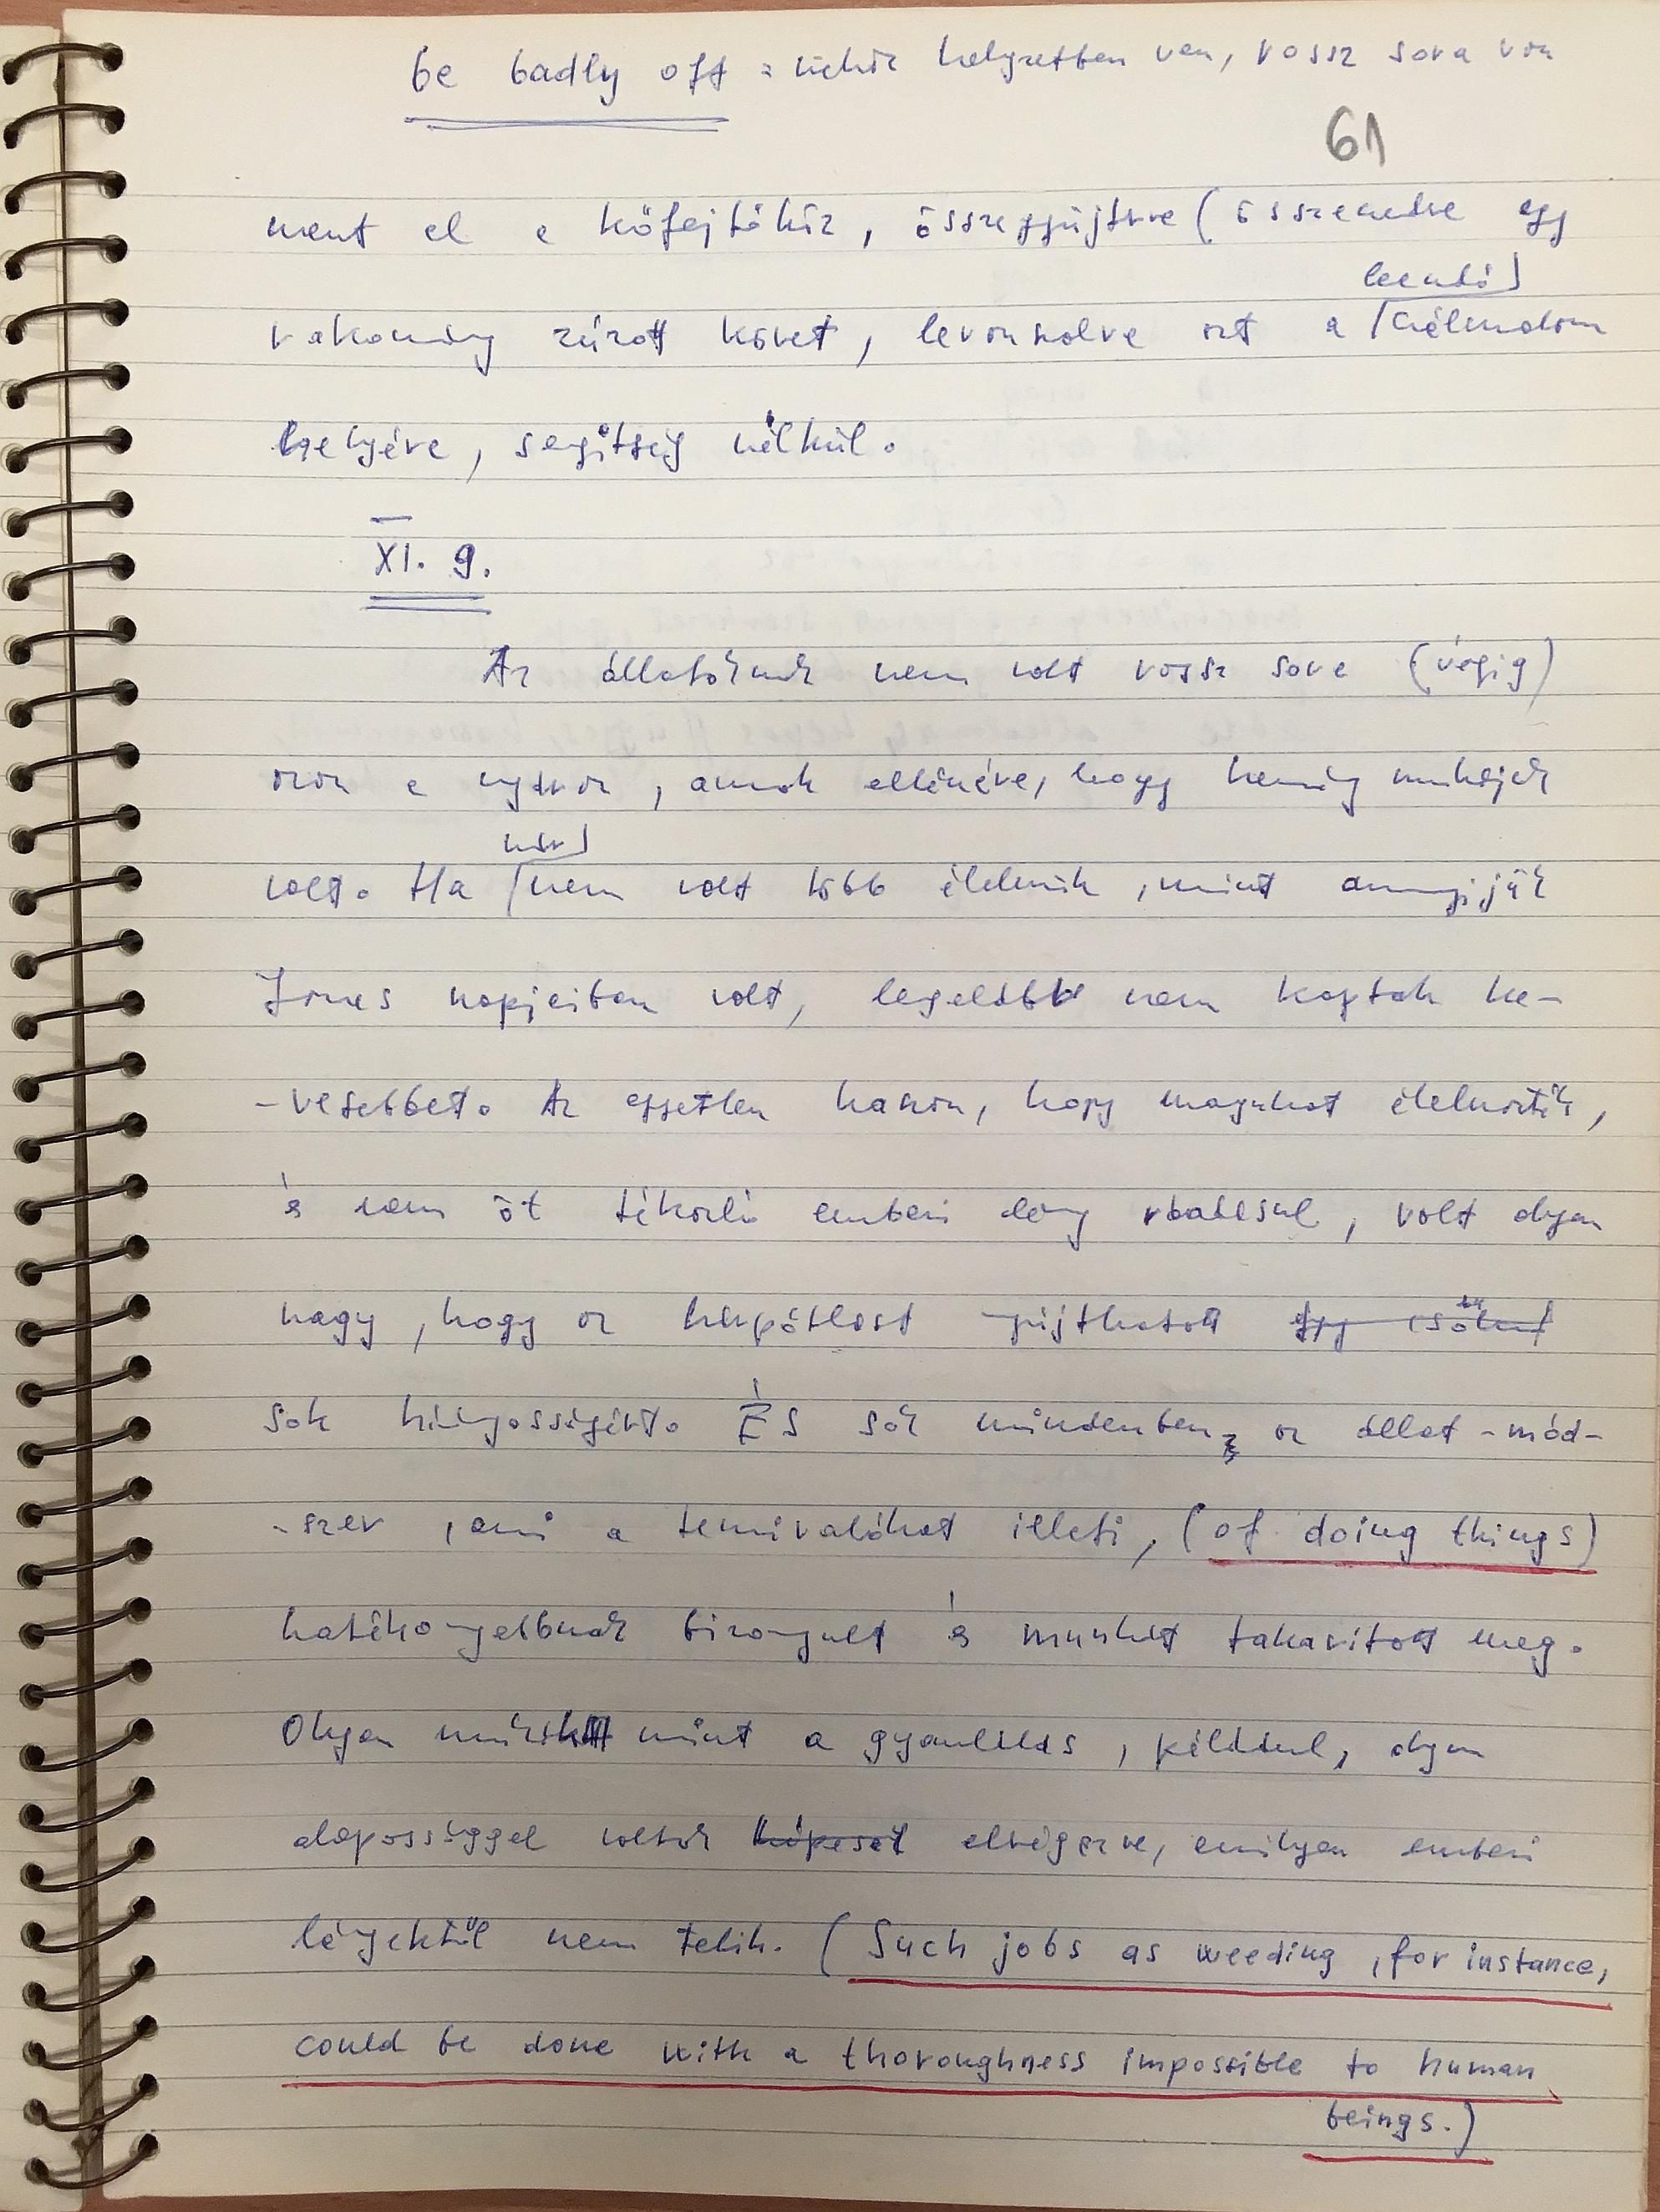 be badly off = nehéz helyzetben van, rossz sora van
61
ment el a kőfejtőhöz, összegyűjtve (összeszedve egy
leendő)
rakomány zúzott követ, levonszolva azt a (szélmalom
helyére, segítség nélkül.
XI. 9.
Az állatoknak nem volt rossz sora (végig)
azon a nyáron, annak ellenére, hogy kemény munkájuk
már)
volt. Ha (nem volt több élelmük, mint amennyijük
Jones napjaiban volt, legalább nem kaptak ke-
-vesebbet. Az egyetlen haszon, hogy magukat élelmezték,
és nem öt tékozló emberi lény ráadásul, volt olyan
nagy, hogy az kárpótlást nyújthatott
sok hiányosságért. És sok mindenben, az állat-mód-
-szer, ami a tennivalókat illeti, (of doing things)
hatékonyabbnak bizonyult és munkát takarított meg.
Olyan munkát mint a gyomlálás, például, olyan
alapossággal voltak képesek elvégezve, amilyen emberi
lényektől nem telik. (Such jobs as weeding, for instance,
could be done with a thoroughness impossible to human
beings.)